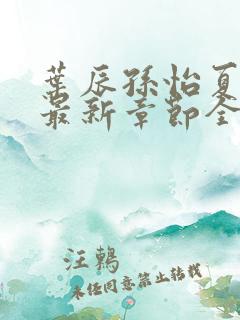 葉辰孫怡夏
最新章節全
汪鷞
未經同意禁止轉載